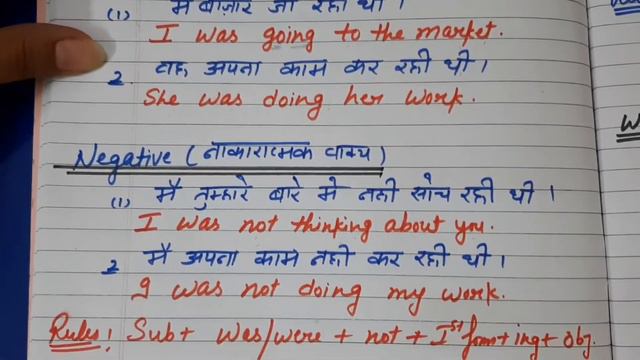 (1) मै बाज़ार जा रही थी ।
I was going to the market.
2 वह अपना काम कर रही थी ।
She was doing her work.
Negative (नाकारात्मक वाक्य)
(1) मै तुम्हारे बारे मे नही सोच रही थी ।
I was not thinking about you.
2 मै अपना काम नही कर रही थी ।
I was not doing my work.
Rules: Sub + was/were + not + Ist form + ing + obj.